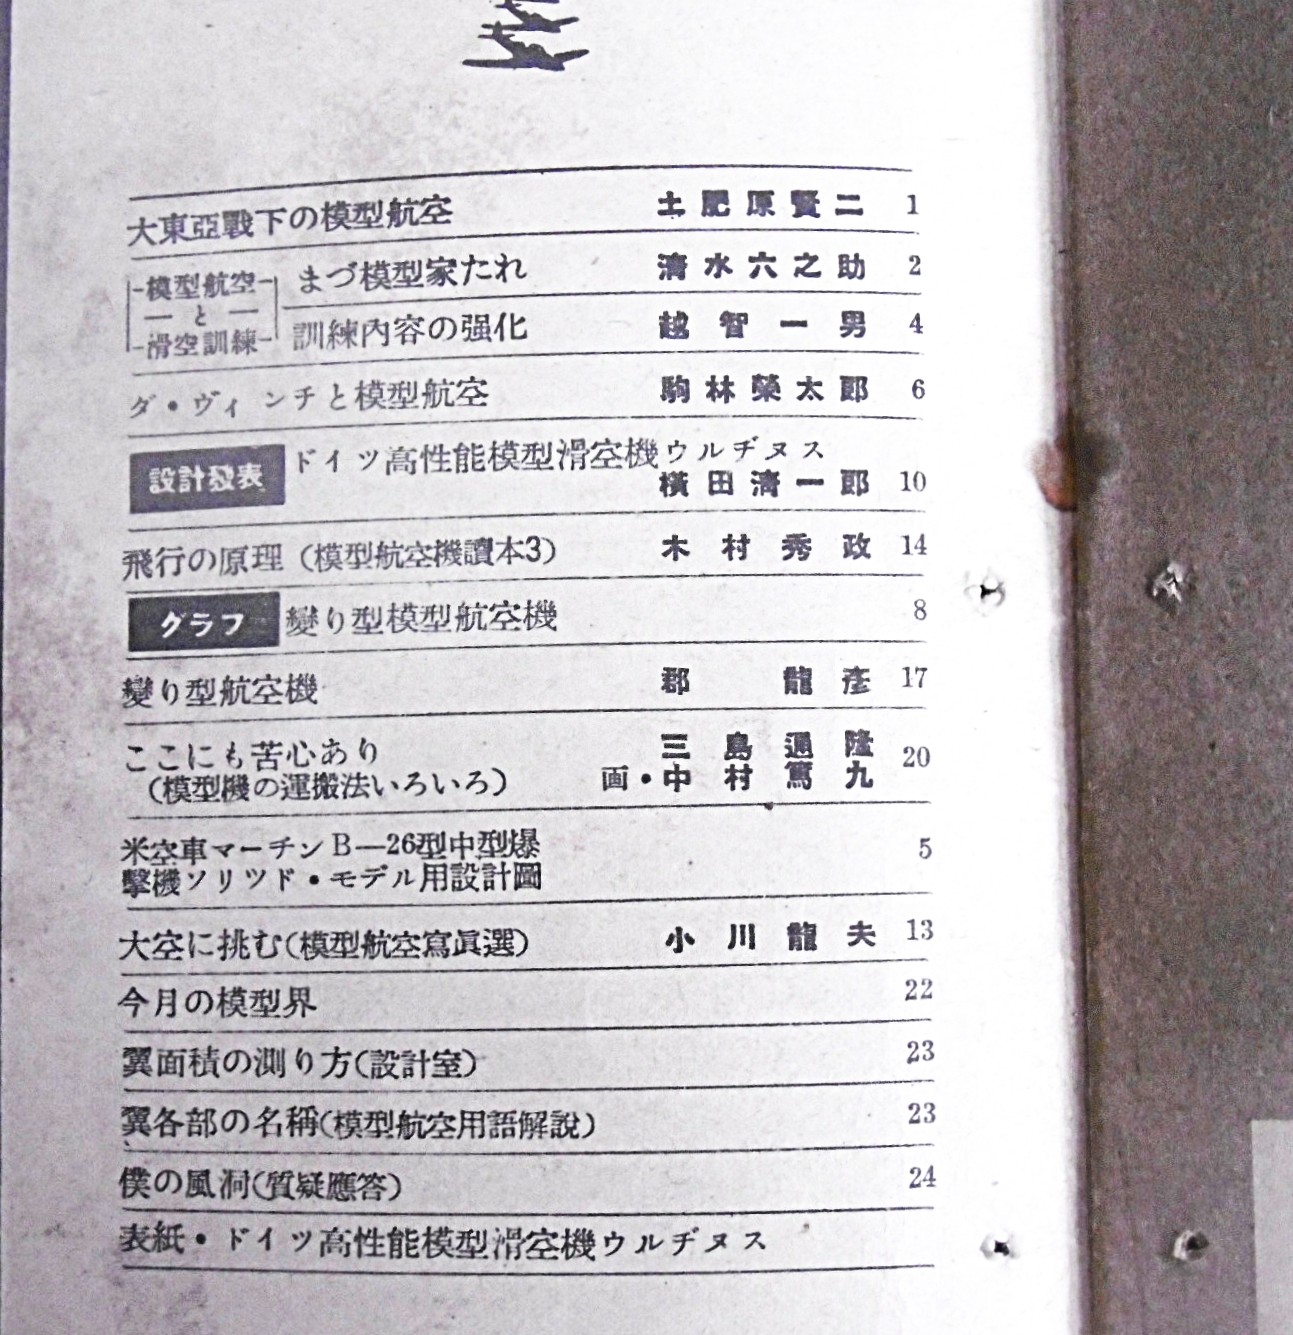 大東亞戰下の模型航空 土肥原賢二 1
模型航空と滑空訓練
まづ模型家たれ 淸水六之助 2
訓練內容の强化 越智一男 4
ダ・ヴィンチと模型航空 駒林榮太郎 6
設計發表 ドイツ高性能模型滑空機ウルヂヌス
橫田淸一郎 10
飛行の原理（模型航空機讀本3） 木村秀政 14
グラフ 變り型模型航空機 8
變り型航空機 郡龍彥 17
ここにも苦心あり 三島通隆 20
（模型機の運搬法いろいろ） 画・中村篤九
米空車マーチンB—26型中型爆 5
擊機ソリツド・モデル用設計圖
大空に挑む（模型航空寫眞選） 小川龍夫 13
今月の模型界 22
翼面積の測り方（設計室） 23
翼各部の名稱（模型航空用語解說） 23
僕の風洞（質疑應答） 24
表紙・ドイツ高性能模型滑空機ウルヂヌス